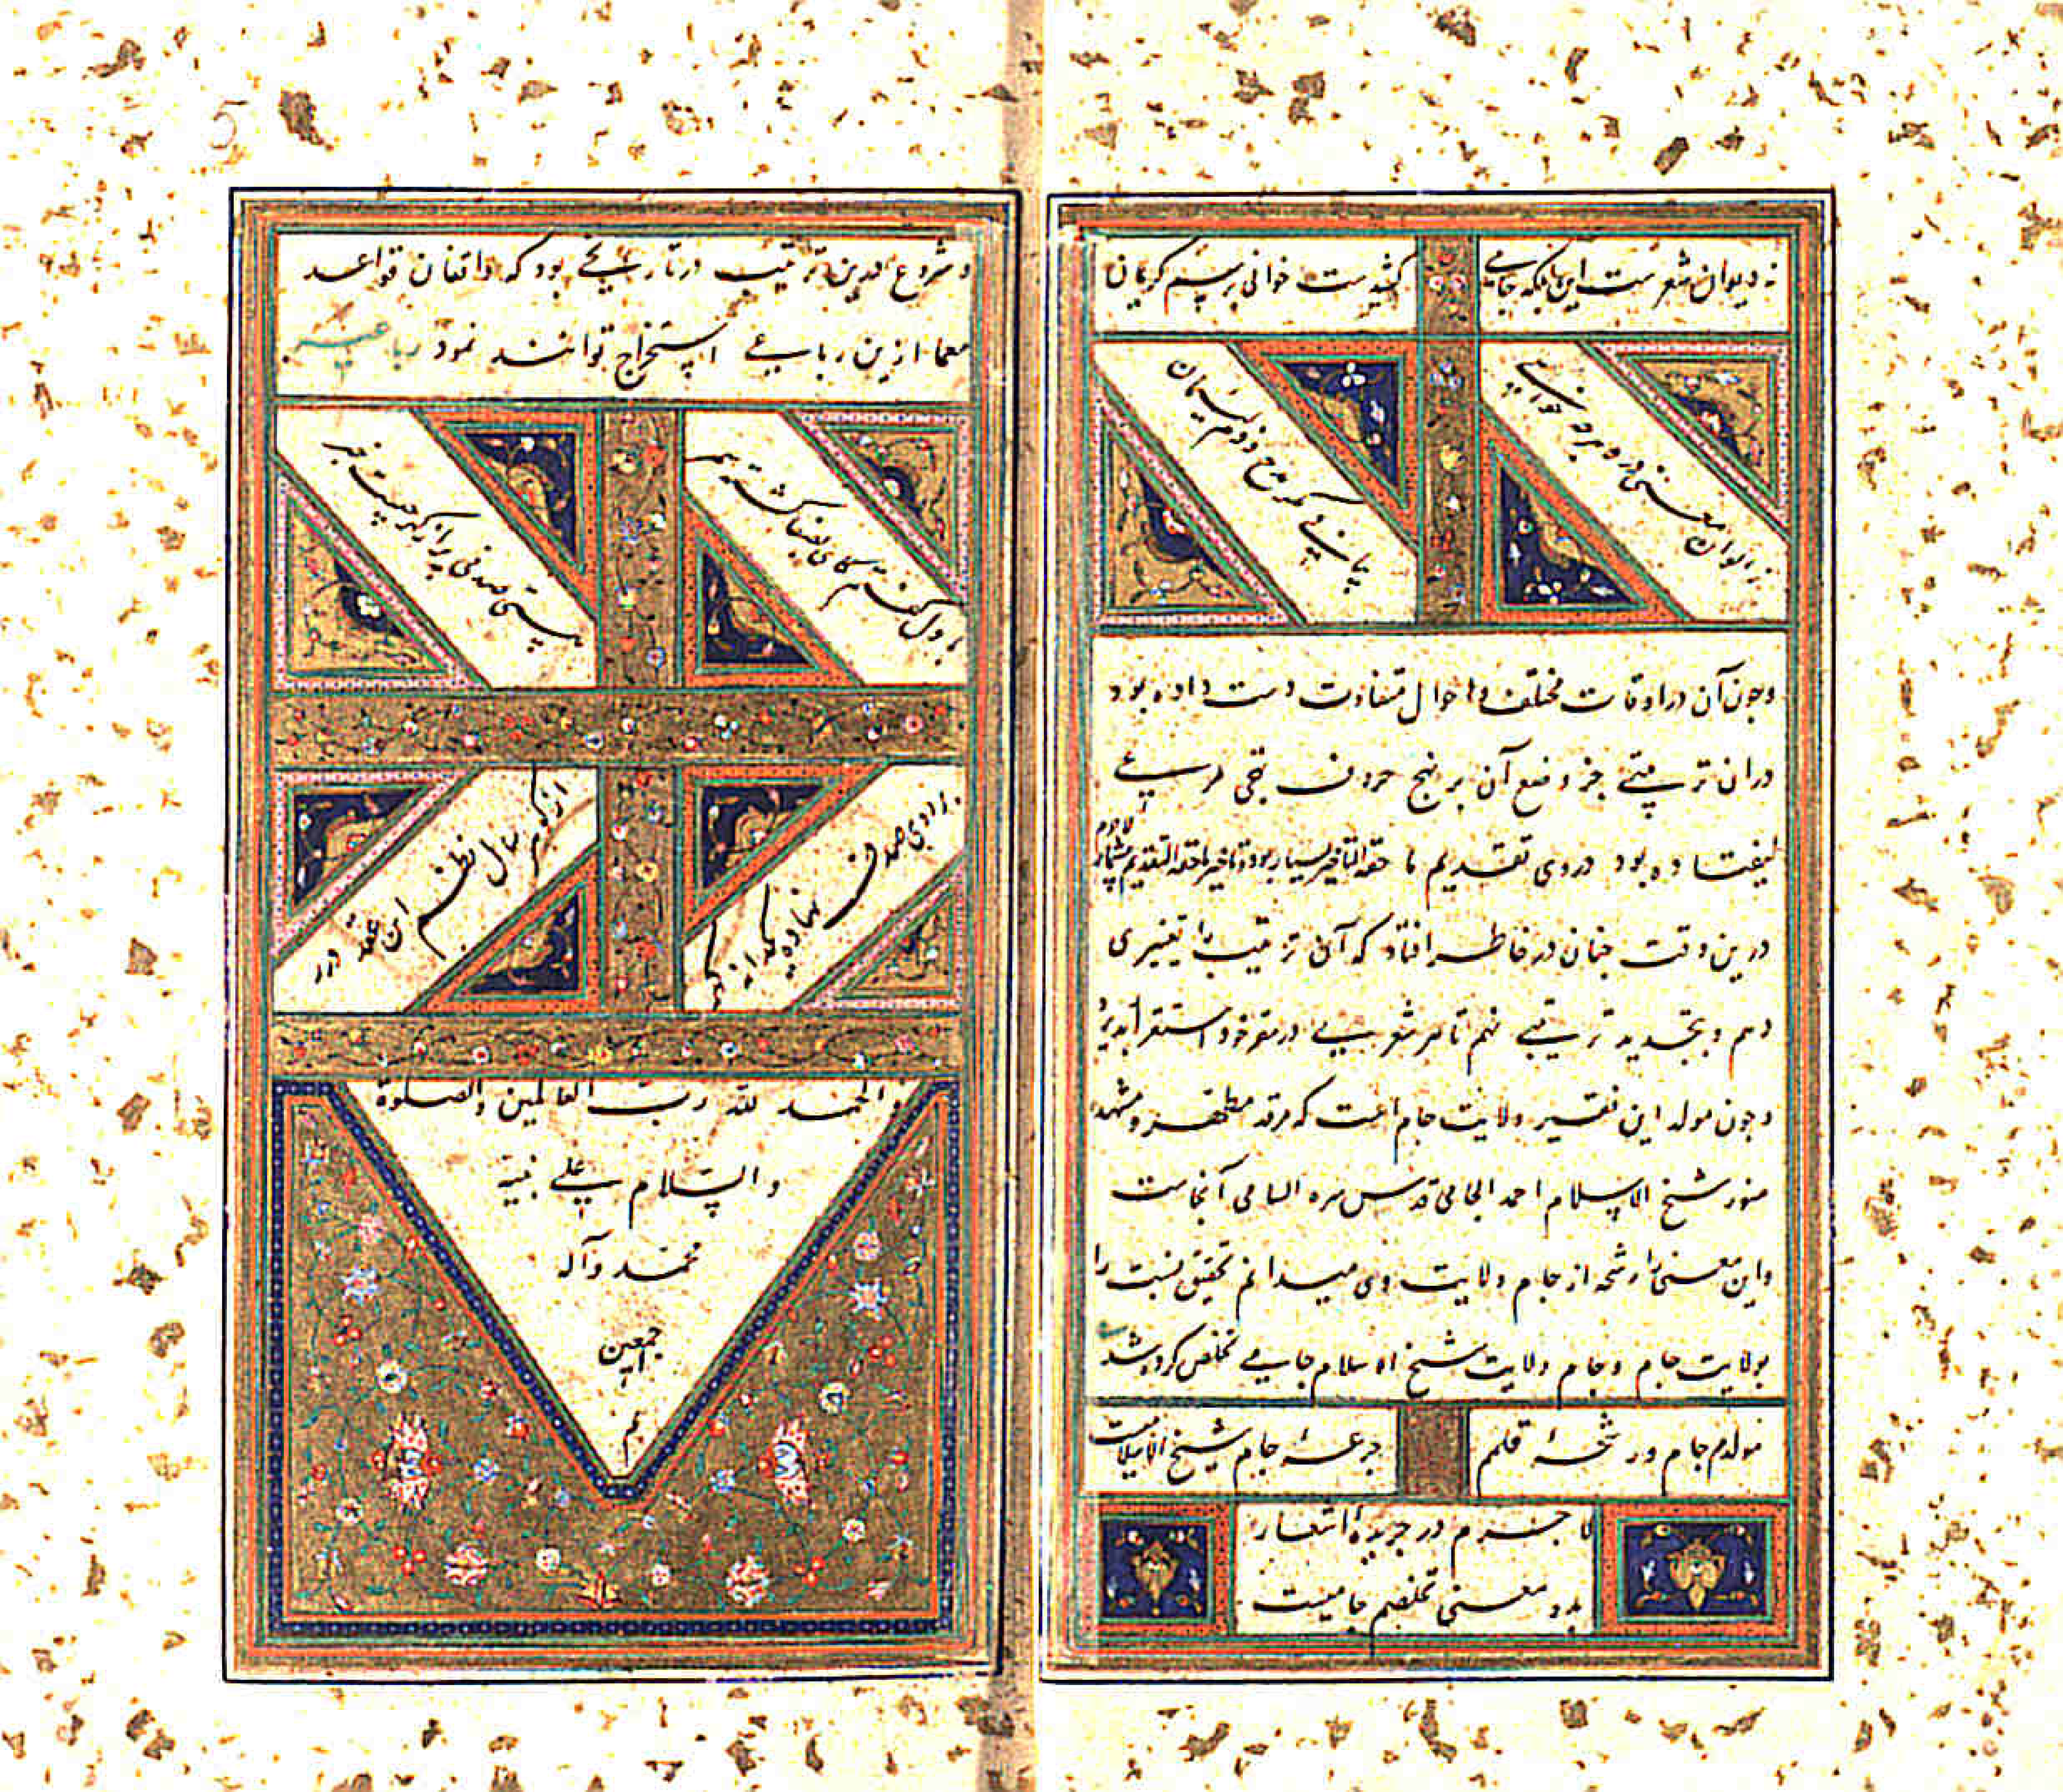 نه دیوان شعر ست این بلکه جامی
کشیدست خوانی برسم کریمان
ز الوان معنی درو هرچه خواهی
بیابی مکر مدح و ذم لئیمان
وچون آن در اوقات مختلف و احوال متفاوت دست داده بود
دران ترتیبی جز وضع آن بر نهج حروف تهجی مرعی
نیفتاده بود دروی تقدیم ما حقه التاخیر بسیار بود و تاخیر ما حقه التقدیم بیشمار لاجرم
درین وقت چنان در خاطر افتاد که آن ترتیب را تغییری
دهم و بتجدید ترتیبی نهم تا هر شعریی در مقر خود استقرار پذیرد
وچون مولد این فقیر ولایت جام است که مرقد مطهر و مشهد
منور شیخ الاسلام احمد الجامی قدس سره السامی آنجاست
واین معنی را رشحه از جام ولایت وی میدانم تحقیق نسبت را
بولایت جام وجام ولایت شیخ الاسلام جامی تخلص کرده شد
مولدم جام ورشحهٔ قلمم
جرعهٔ جام شیخ الاسلامیست
لاجرم در جریدهٔ اشعار
بدو معنی تخلصم جامیست
و شروع درین ترتیب در تاریخی بود که واقفان قواعد
معما ازین رباعی استخراج توانند نمود رباعیه
با دل گفتم کای بفضا گشته سمر
هستی صدفی پر از گهر چیست خبر
دادی صدف نهاده
از گهر سال نظم این عقد درر
والحمد لله رب العالمین والصلوة
والسلام علی نبیه
محمد وآله
اجمعین
تم
5